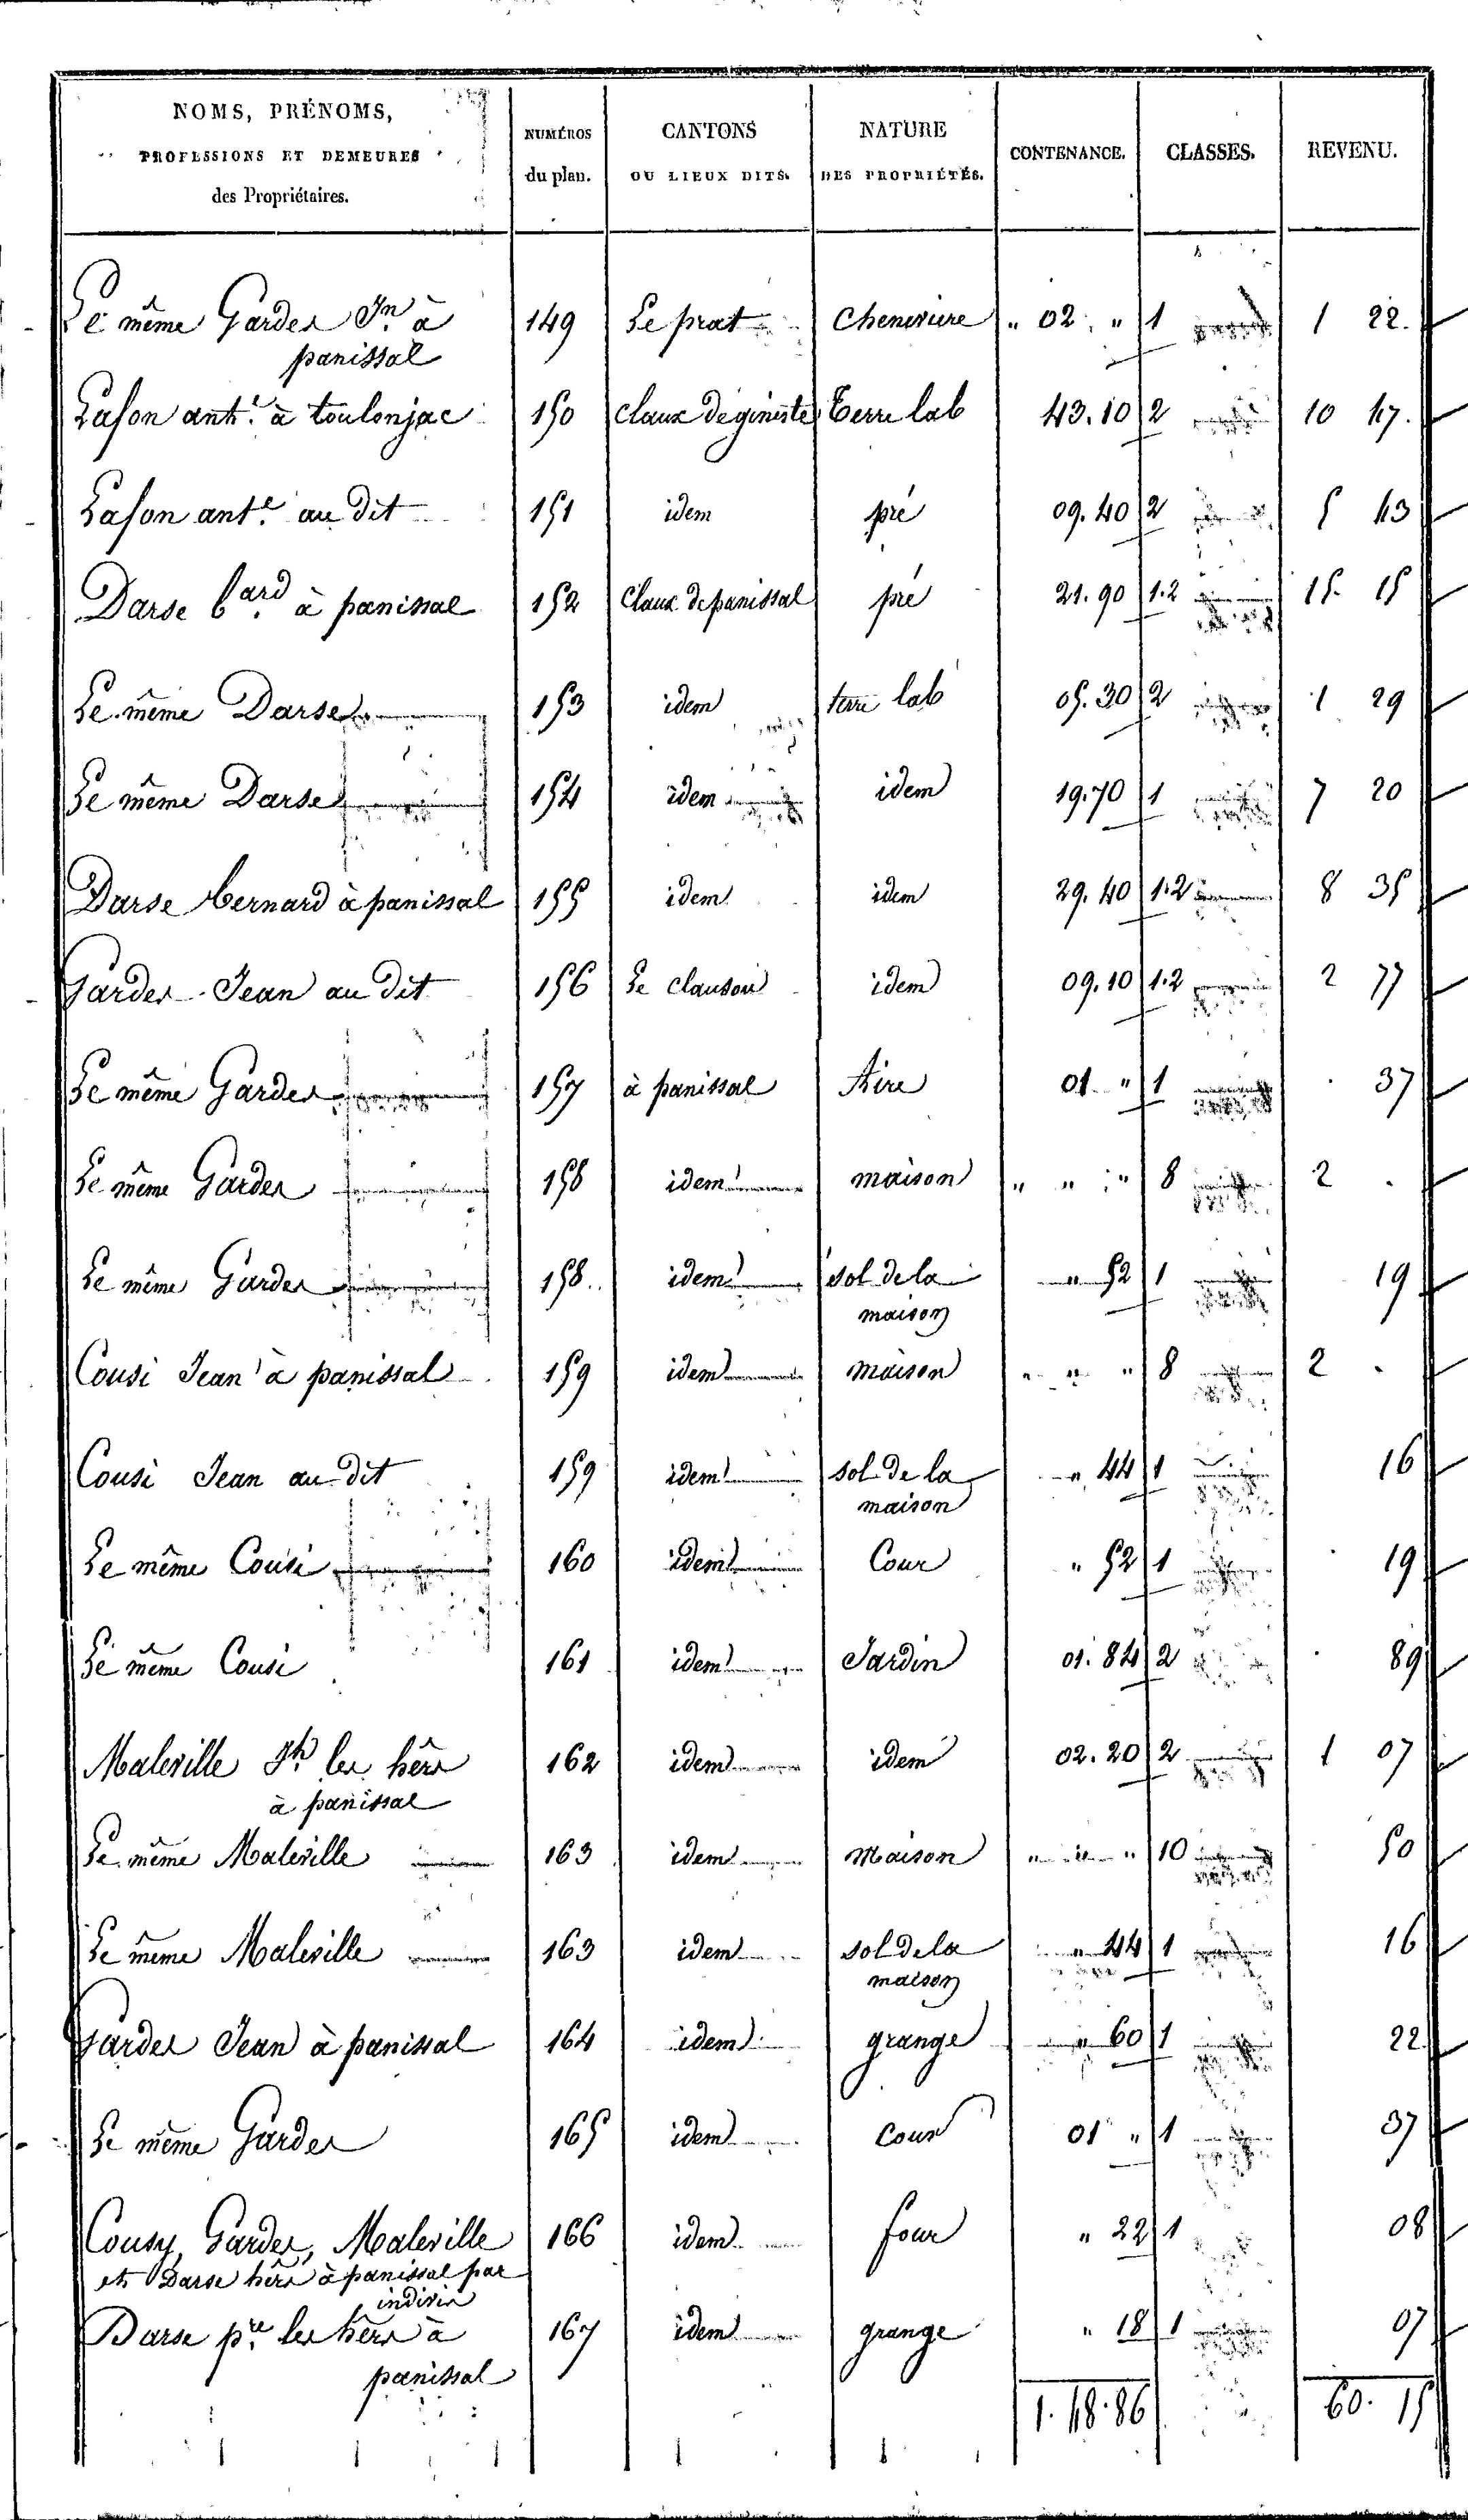 NOMS, PRÉNOMS, PROFESSIONS ET DEMEURES des Propriétaires. NUMÉROS du plan. CANTONS OU LIEUX DITS. NATURE DES PROPRIÉTÉS. CONTENANCE. CLASSES. REVENU.
Le même Garder Jn à 149 Le prat Chenevière " 02 " 1 1 22.
panissal
Lafon ant.e à toulonjac 150 claux de gineste Terre lab 43.10 2 10 47.
Lafon ant.e au dit 151 idem pré 09.40 2 5 43
Darse b.ard à panissal 152 Claux de panissal pré 21.90 1.2 15. 15
Le même Darse 153 idem terre lab 05.30 2 1 29
Le même Darse 154 idem idem 19.70 1 7 20
Darse bernard à panissal 155 idem idem 29.40 1.2 8 35
Garder Jean au dit 156 Le clausou idem 09.10 1.2 2 77
Le même Garder 157 à panissal Aire 01 " 1 37
Le même Garder 158 idem maison " " " 8 2 .
Le même Garder 158. idem sol de la " 52 1 19
maison
Cousi Jean à panissal 159 idem maison " " " 8 2 .
Cousi Jean au dit 159 idem sol de la " 44 1 16
maison
Le même Cousi 160 idem Cour " 52 1 19
Le même Cousi 161 idem Jardin 01.84 2 89
Maleville Jh les hérs 162 idem idem 02.20 2 1 07
à panissal
Le même Maleville 163 idem Maison " " " 10 50
Le même Maleville 163 idem sol de la " 44 1 16
maison
Garder Jean à panissal 164 idem grange " 60 1 22
Le même Garder 165 idem Cour 01 " 1 37
Cousy, Garder, Maleville 166 idem four " 22 1 08
et Darse hérs à panissal par
indivis
Darse p.re les hérs à 167 idem grange " 18 1 07
panissal
1.48.86 60. 15